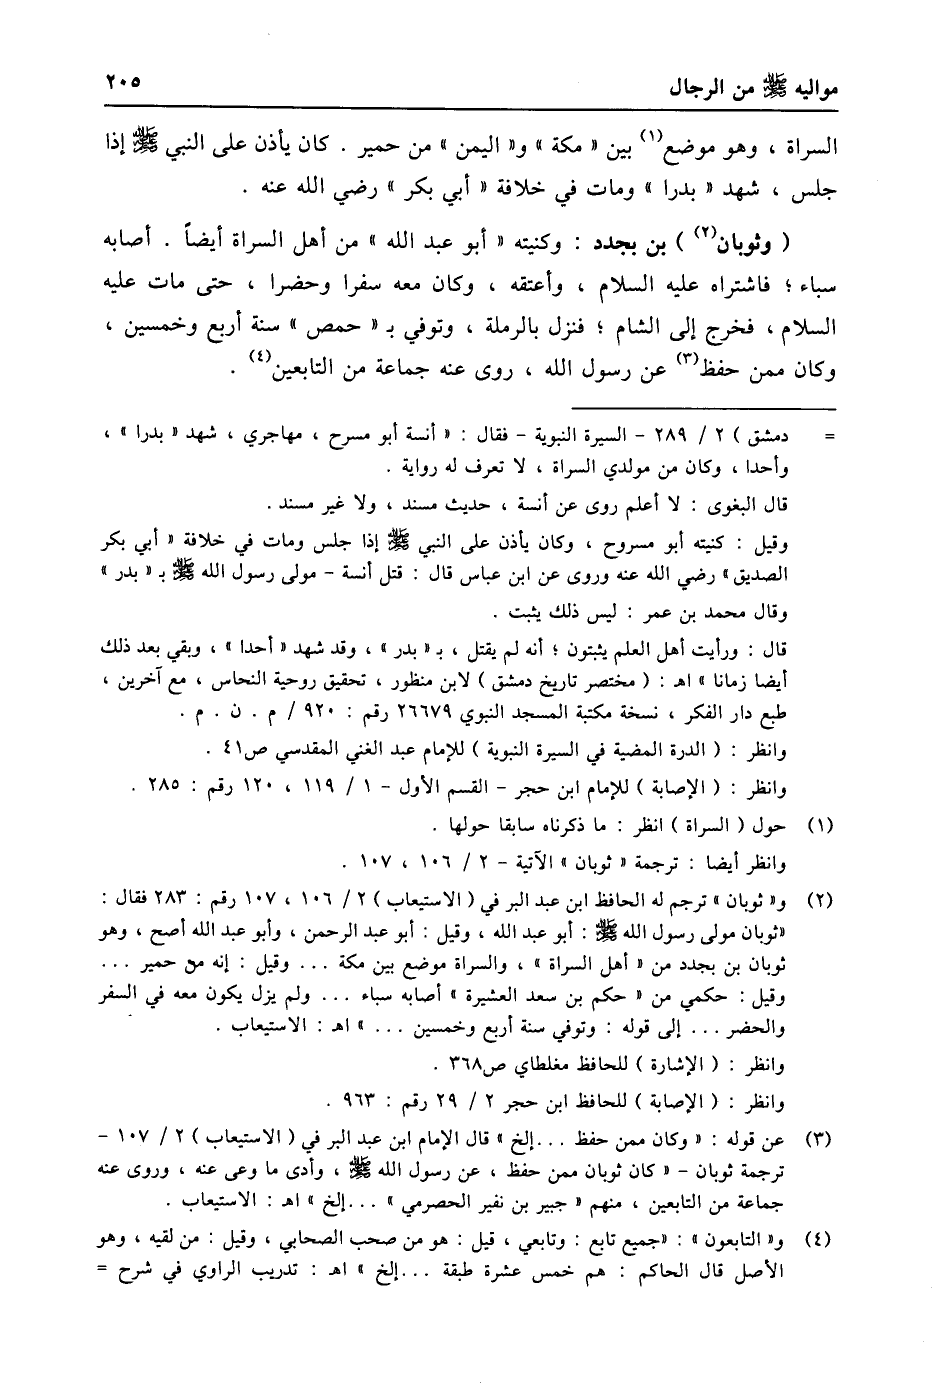 مواليه ﷺ من الرجال
٢٠٥
السراة ، وهو موضع(١) بين « مكة » و« اليمن » من حمير . كان يأذن على النبي ﷺ إذا
جلس ، شهد « بدرا » ومات في خلافة « أبي بكر » رضي الله عنه .
( وثوبان(٢) ) بن بجدد : وكنيته « أبو عبد الله » من أهل السراة أيضاً . أصابه
سباء ؛ فاشتراه عليه السلام ، وأعتقه ، وكان معه سفرا وحضرا ، حتى مات عليه
السلام ، فخرج إلى الشام ؛ فنزل بالرملة ، وتوفي بـ « حمص » سنة أربع وخمسين ،
وكان ممن حفظ(٣) عن رسول الله ، روى عنه جماعة من التابعين(٤) .
= دمشق ) ٢ / ٢٨٩ - السيرة النبوية - فقال : « أنسة أبو مسرح ، مهاجري ، شهد « بدرا » ،
وأحدا ، وكان من مولدي السراة ، لا تعرف له رواية .
قال البغوى : لا أعلم روى عن أنسة ، حديث مسند ، ولا غير مسند .
وقيل : كنيته أبو مسروح ، وكان يأذن على النبي ﷺ إذا جلس ومات في خلافة « أبي بكر
الصديق » رضي الله عنه وروى عن ابن عباس قال : قتل أنسة - مولى رسول الله ﷺ بـ « بدر »
وقال محمد بن عمر : ليس ذلك يثبت .
قال : ورأيت أهل العلم يثبتون ؛ أنه لم يقتل ، بـ « بدر » ، وقد شهد « أحدا » ، وبقي بعد ذلك
أيضا زمانا » اهـ : ( مختصر تاريخ دمشق ) لابن منظور ، تحقيق روحية النحاس ، مع آخرين ،
طبع دار الفكر ، نسخة مكتبة المسجد النبوي ٢٦٦٧٩ رقم : ٩٢٠ / م . ن . م .
وانظر : ( الدرة المضية في السيرة النبوية ) للإمام عبد الغني المقدسي ص٤١ .
وانظر : ( الإصابة ) للإمام ابن حجر - القسم الأول - ١ / ١١٩ ، ١٢٠ رقم : ٢٨٥ .
(١) حول ( السراة ) انظر : ما ذكرناه سابقا حولها .
وانظر أيضا : ترجمة « ثوبان » الآتية - ٢ / ١٠٦ ، ١٠٧ .
(٢) و« ثوبان » ترجم له الحافظ ابن عبد البر في ( الاستيعاب ) ٢ / ١٠٦ ، ١٠٧ رقم : ٢٨٣ فقال :
«ثوبان مولى رسول الله ﷺ : أبو عبد الله ، وقيل : أبو عبد الرحمن ، وأبو عبد الله أصح ، وهو
ثوبان بن بجدد من « أهل السراة » ، والسراة موضع بين مكة ... وقيل : إنه من حمير ...
وقيل : حكمي من « حكم بن سعد العشيرة » أصابه سباء ... ولم يزل يكون معه في السفر
والحضر ... إلى قوله : وتوفي سنة أربع وخمسين ... » اهـ : الاستيعاب .
وانظر : ( الإشارة ) للحافظ مغلطاي ص٣٦٨ .
وانظر : ( الإصابة ) للحافظ ابن حجر ٢ / ٢٩ رقم : ٩٦٣ .
(٣) عن قوله : « وكان ممن حفظ ...إلخ » قال الإمام ابن عبد البر في ( الاستيعاب ) ٢ / ١٠٧ -
ترجمة ثوبان - « كان ثوبان ممن حفظ ، عن رسول الله ﷺ ، وأدى ما وعى عنه ، وروى عنه
جماعة من التابعين ، منهم « جبير بن نفير الحصرمي » ...إلخ » اهـ : الاستيعاب .
(٤) و« التابعون » : «جميع تابع : وتابعي ، قيل : هو من صحب الصحابي ، وقيل : من لقيه ، وهو
الأصل قال الحاكم : هم خمس عشرة طبقة ...إلخ » اهـ : تدريب الراوي في شرح =